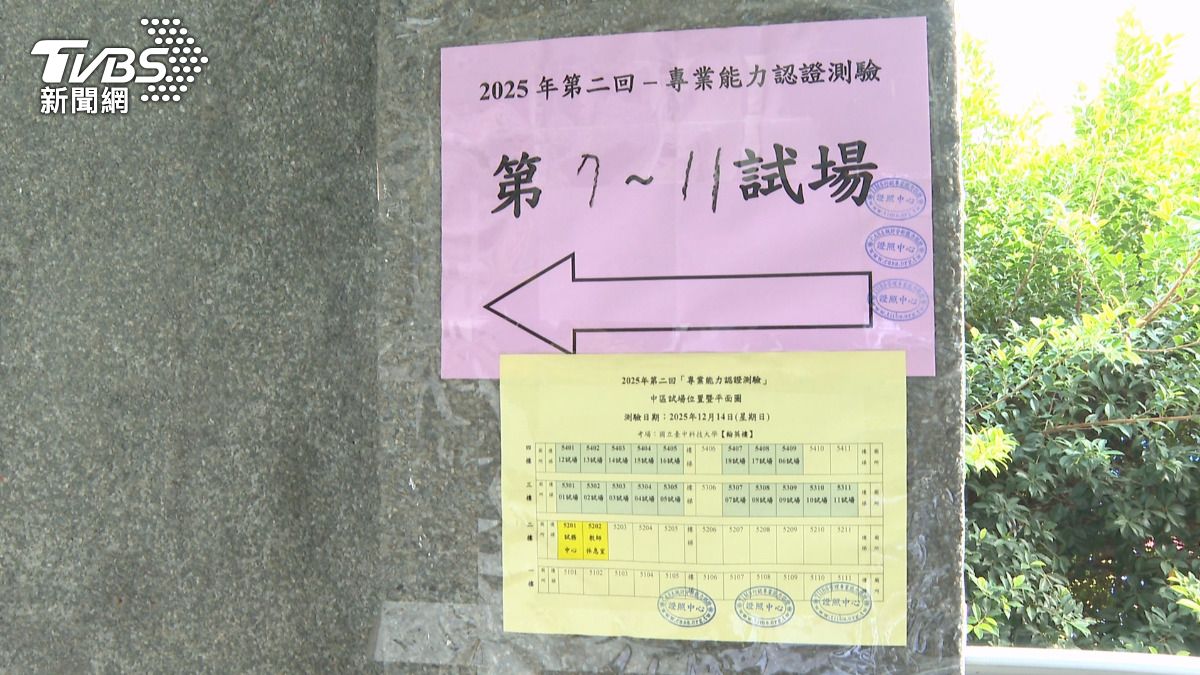 TVBS
新聞網
2025年第二回－專業能力認證測驗
第 7 ~ 11 試場
證照中心
證照中心
證照中心
2025年第二回「專業能力認證測驗」
中區試場位置暨平面圖
測驗日期：2025年12月14日(星期日)
考場：國立臺中科技大學【翰英樓】
四樓 廁所 樓梯 5401 5402 5403 5404 5405 樓梯 5406 5407 5408 5409 5410 5411 樓梯 廁所
12試場 13試場 14試場 15試場 16試場 18試場 17試場 06試場
三樓 廁所 樓梯 5301 5302 5303 5304 5305 樓梯 5306 5307 5308 5309 5310 5311 樓梯 廁所
01試場 02試場 03試場 04試場 05試場 07試場 08試場 09試場 10試場 11試場
二樓 廁所 樓梯 5201 5202 5203 5204 5205 樓梯 5206 5207 5208 5209 5210 5211 樓梯 廁所
試務中心 教師休息室
一樓 廁所 樓梯 5101 5102 5103 5104 5105 樓梯 5106 5107 5108 5109 5110 5111 樓梯 廁所
證照中心 證照中心 證照中心